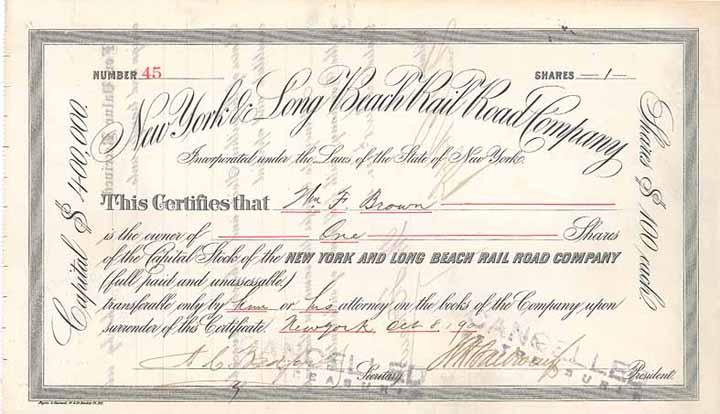 NUMBER 45 SHARES —1—
New York & Long Beach Rail Road Company
Incorporated under the Laws of the State of New York.
Capital $400,000.
Shares $100 each.
This Certifies that Wm F. Brown
is the owner of One Shares
of the Capital Stock of the NEW YORK AND LONG BEACH RAIL ROAD COMPANY
(full paid and unassessable)
transferable only by him or his attorney on the books of the Company upon
surrender of this Certificate New York Oct 8, 190
CANCELLED
TREASURY
CANCELLED
TREASURY
Secretary. President.